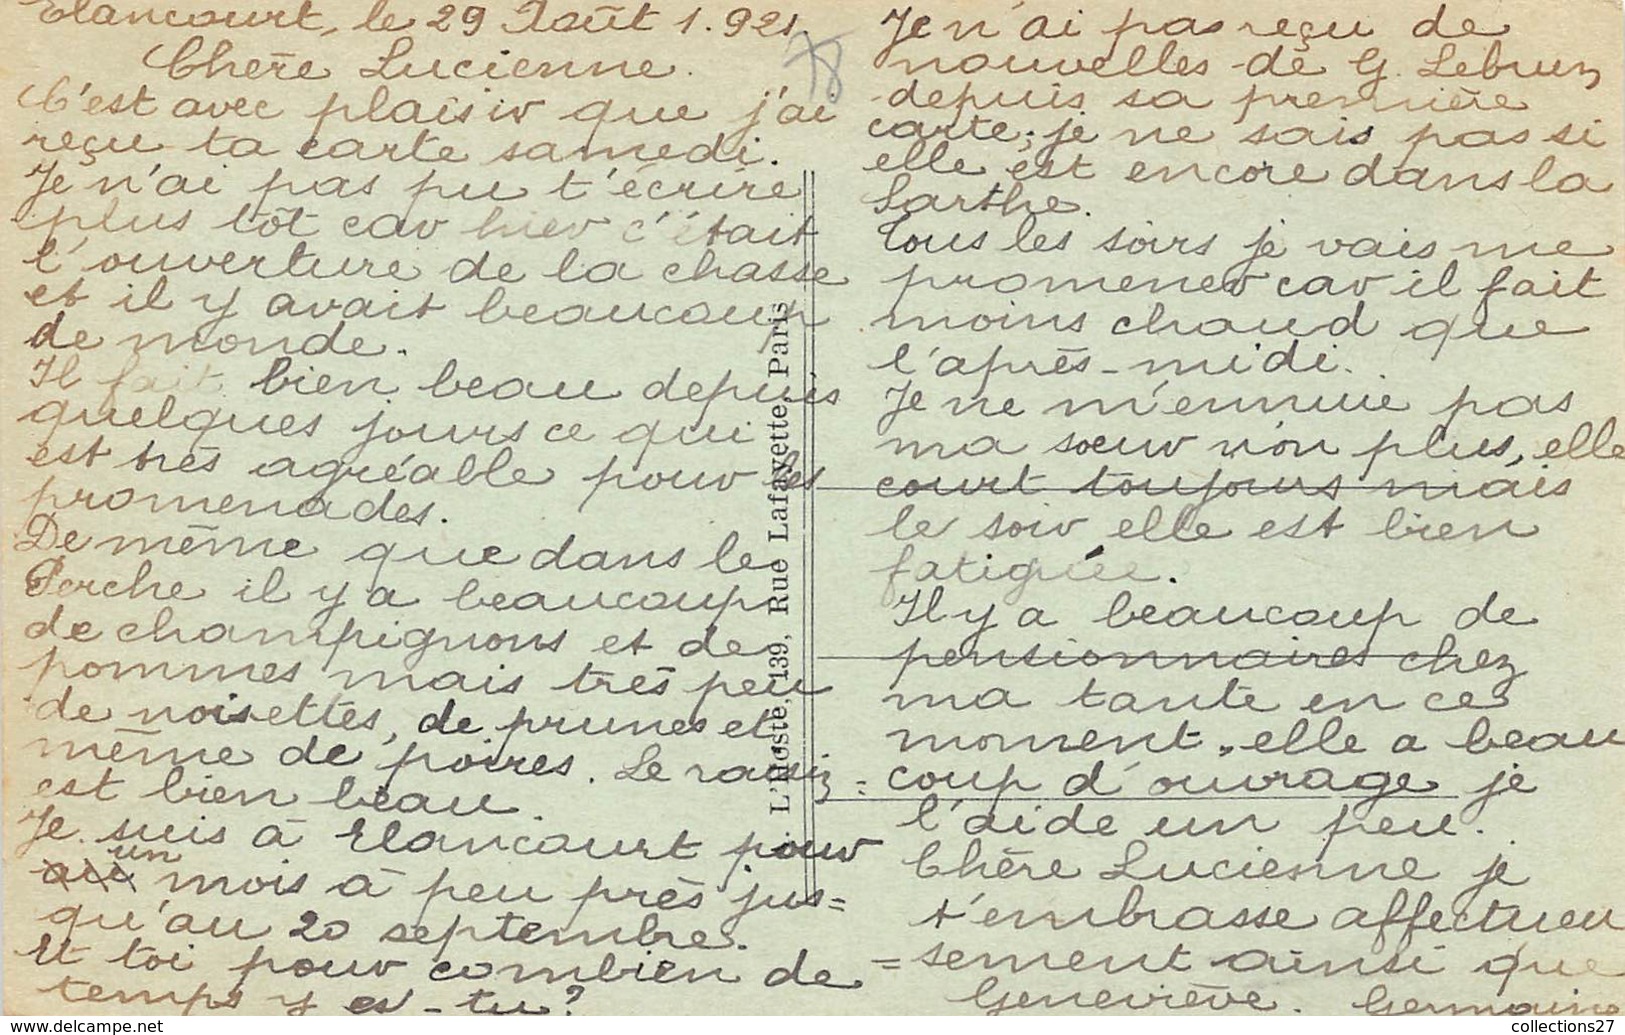 Elancourt, le 29 Août 1.921.
Chère Lucienne.
C'est avec plaisir que j'ai
reçu ta carte samedi.
Je n'ai pas pu t'écrire
plus tôt car hier c'était
l'ouverture de la chasse
et il y avait beaucoup
de monde.
Il fait bien beau depuis
quelques jours ce qui
est très agréable pour les
promenades.
De même que dans le
Perche il y a beaucoup
de champignons et de
pommes mais très peu
de noisettes, de prunes et
même de poires. Le raisin
est bien beau.
Je suis à Elancourt pour
un mois à peu près jus=
qu'au 20 septembre.
Et toi pour combien de
temps y es-tu?
78
L'Hoste, 139, Rue Lafayette, Paris
Je n'ai pas reçu de
nouvelles de G. Lebrun
depuis sa première
carte; je ne sais pas si
elle est encore dans la
Sarthe.
Tous les soirs je vais me
promener car il fait
moins chaud que
l'après-midi.
Je ne m'ennuie pas
ma sœur non plus, elle
court toujours mais
le soir elle est bien
fatiguée.
Il y a beaucoup de
pensionnaires chez
ma tante en ce
moment, elle a beau
=coup d'ouvrage je
l'aide un peu.
Chère Lucienne je
t'embrasse affectueu
=sement ainsi que
Geneviève. Germaine
collections27
www.delcampe.net